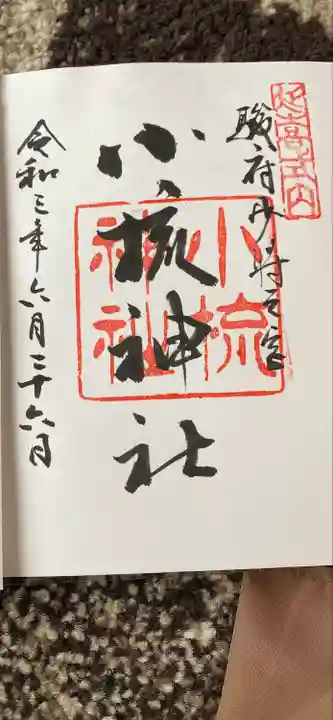 延喜式内
駿府少将之宮
小梳神社
小梳
神社
令和三年六月二十六日